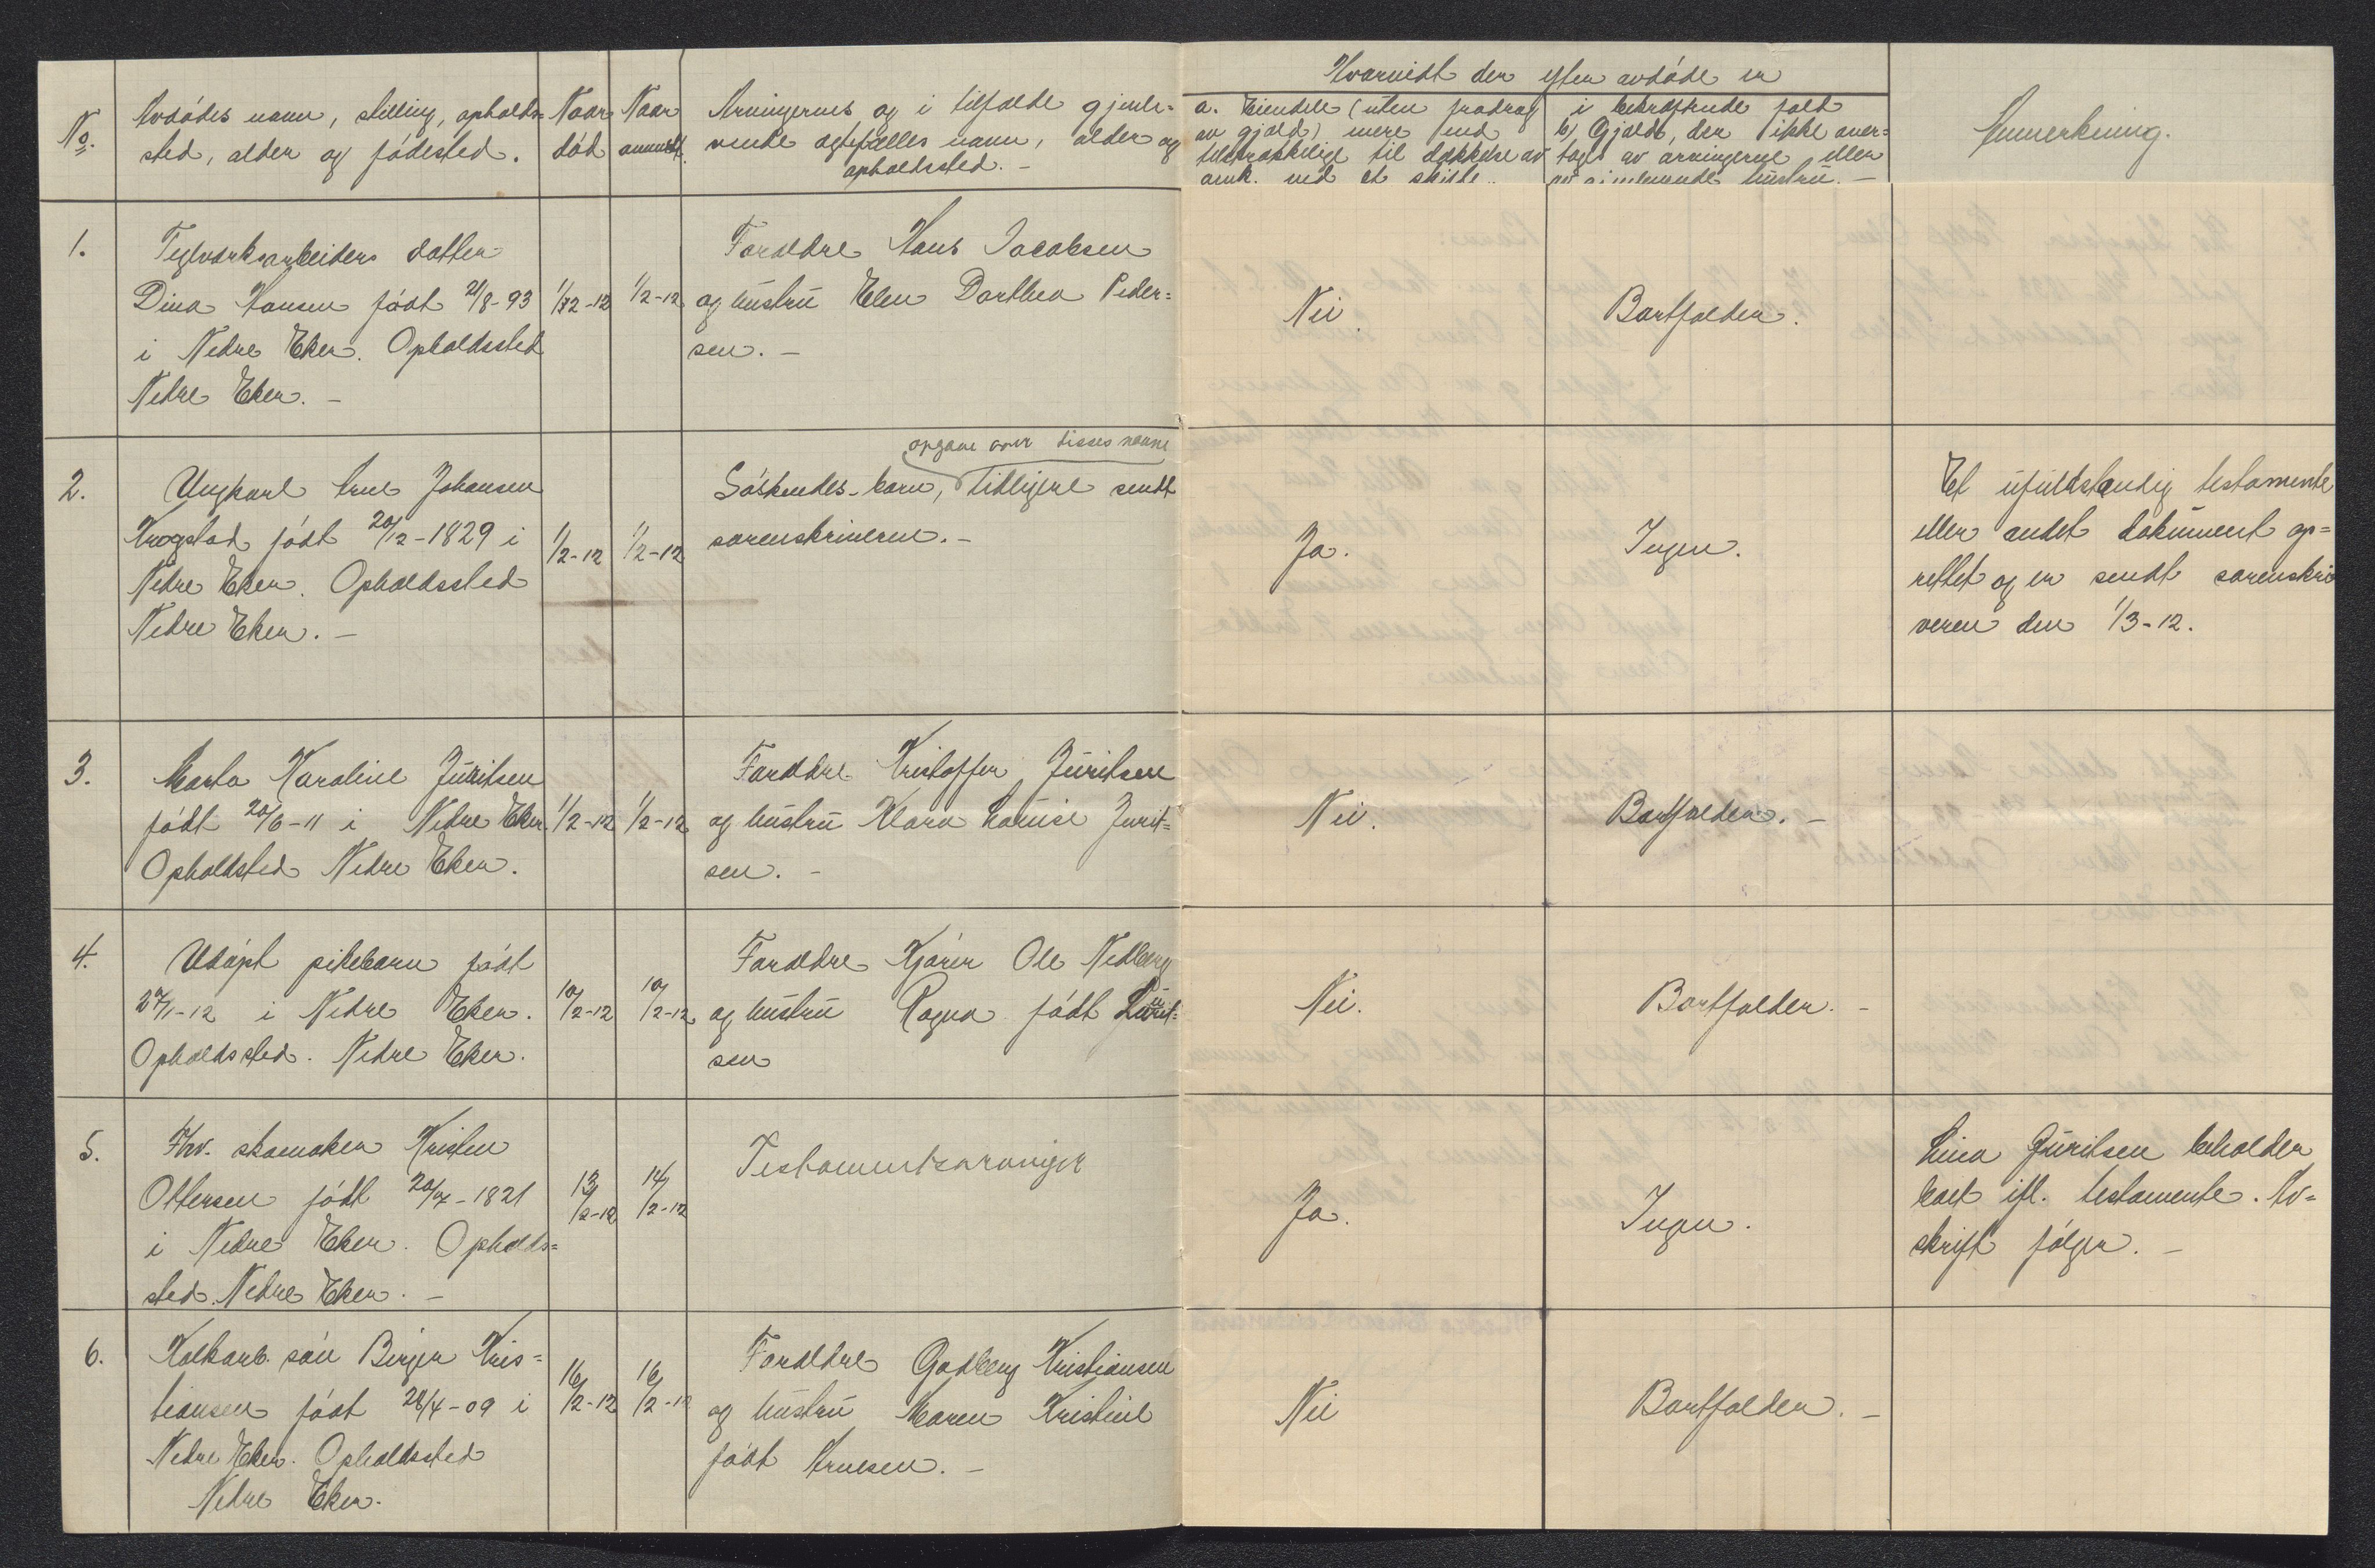 No.
Avdødes navn, stilling, opholds=
sted, alder og fødested.
Naar
død
Naar
anmeldt.
Arvingernes og i tilfælde gjenle=
vende egtefælles navn, alder og
opholdssted. –
Hvorvidt der efter avdøde er
a. Eiendele (uten fradrag
av gjæld) mere end
tilstrækkelige til dækkelse av
omk. ved et skifte.
i bekræftende fald
b) Gjæld, der ikke over=
tages av arvingerne eller
av gjenlevende hustru. –
Anmerkning.
1.
Teglverksarbeiders datter
Dina Hansen født 21/8-93
i Nedre Eker. Opholdssted
Nedre Eker. –
1/2-12
1/2-12
Forældre Hans Jacobsen
og hustru Elen Dorthea Peder=
sen. –
Nei.
Bortfalder.
2.
Ungkarl Arne Johansen
Krogstad født 20/12-1829 i
Nedre Eker. Opholdssted
Nedre Eker. –
1/2-12
1/2-12
opgave over disses navne
Søskendes-barn, tidligere sendt
sorenskriveren. –
Ja.
Ingen.
Et ufuldstændig testamente
eller andet dokument op=
rettet og er sendt sorenskri
veren den 1/3-12.
3.
Marta Karoline Juritsen
født 20/6-11 i Nedre Eker.
Opholdsted Nedre Eker.
1/2-12
1/2-12
Forældre Kristoffer Juritsen
og hustru Klara Louise Jurit=
sen. –
Nei.
Bortfalder. –
4.
Udøpt pikebarn født
27/1-12 i Nedre Eker.
Opholdssted. Nedre Eker.
10/2-12
10/2-12
Forældre Kjører Ole Nedberg
og hustru Ragna født
sen
Nei.
Bortfalder. –
5.
Fhv. skomaker Kristen
Ottersen født 20/7-1821
i Nedre Eker. Opholds=
sted. Nedre Eker. –
13/2-12
14/2-12
Testamentsarvinger
Ja.
Ingen.
Lina Juritsen beholder
boet ifl. testamente. Av=
skrift følger. –
6.
Kalkarb. søn Birger Kris=
tiansen født 28/4-09 i
Nedre Eker. Opholdssted
Nedre Eker.
16/2-12
16/2-12
Forældre Godberg Kristiansen
og hustru Maren Kristine
født Arnesen. –
Nei
Bortfalder. –